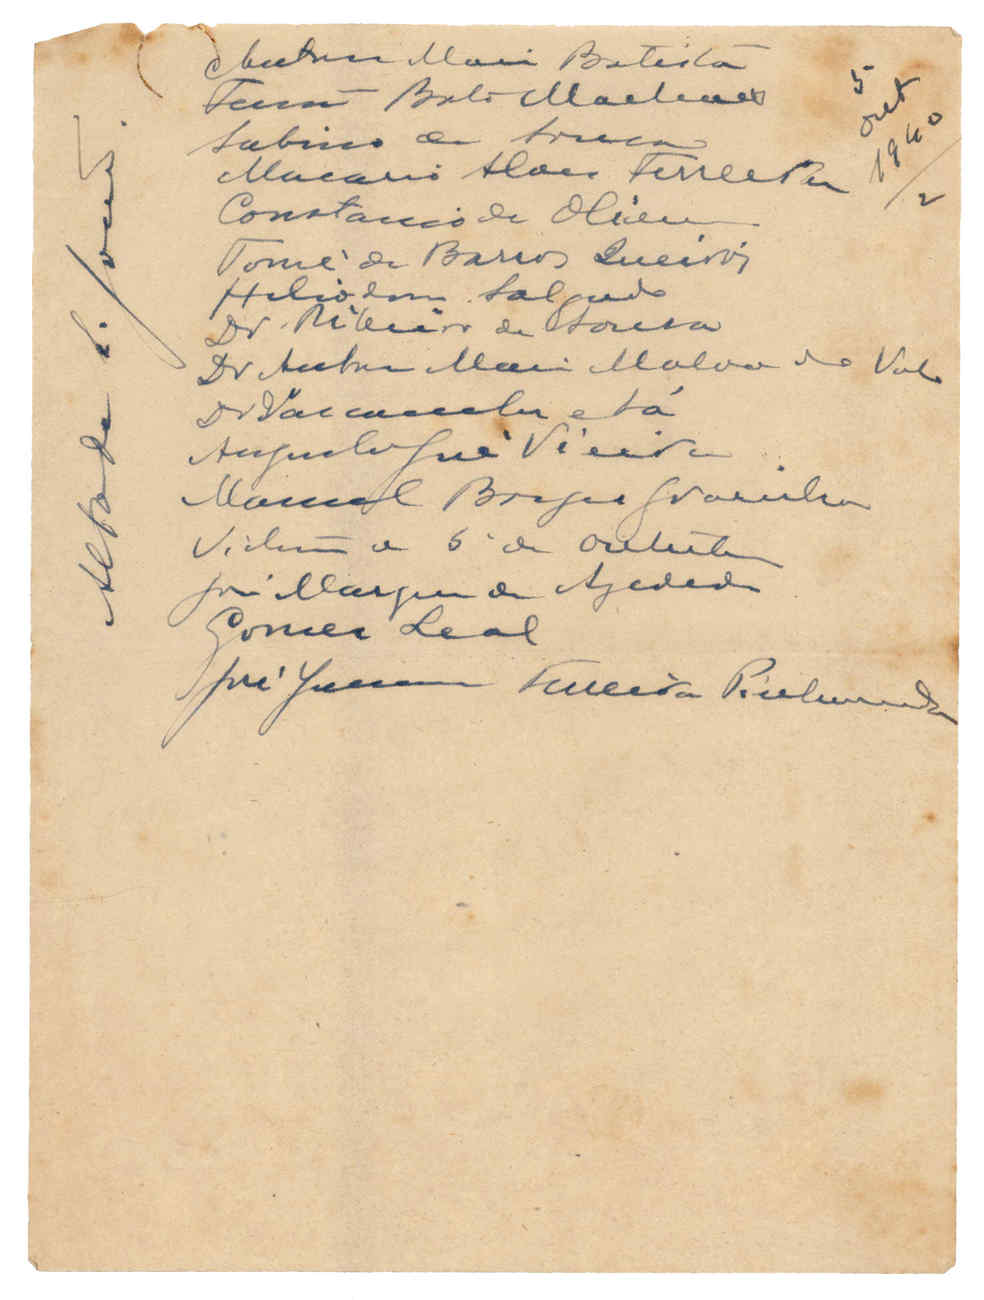 5 out 1940
/2
Alto de S. João
António Maria Batista
Fernão Boto Machado
Sabino de Sousa
Macario Alves Ferreira
Constancio de Oliveira
Tomé de Barros Queirós
Heliodoro Salgado
Dr Ribeiro de Sousa
Dr Antonio Maria Malva do Vale
Dr Vasconcelos e Sá
Augusto José Vieira
Manuel Borges Grainha
Vitimas de 5 de outubro
José Marques de Azevedo
Gomes Leal
José Ferreira